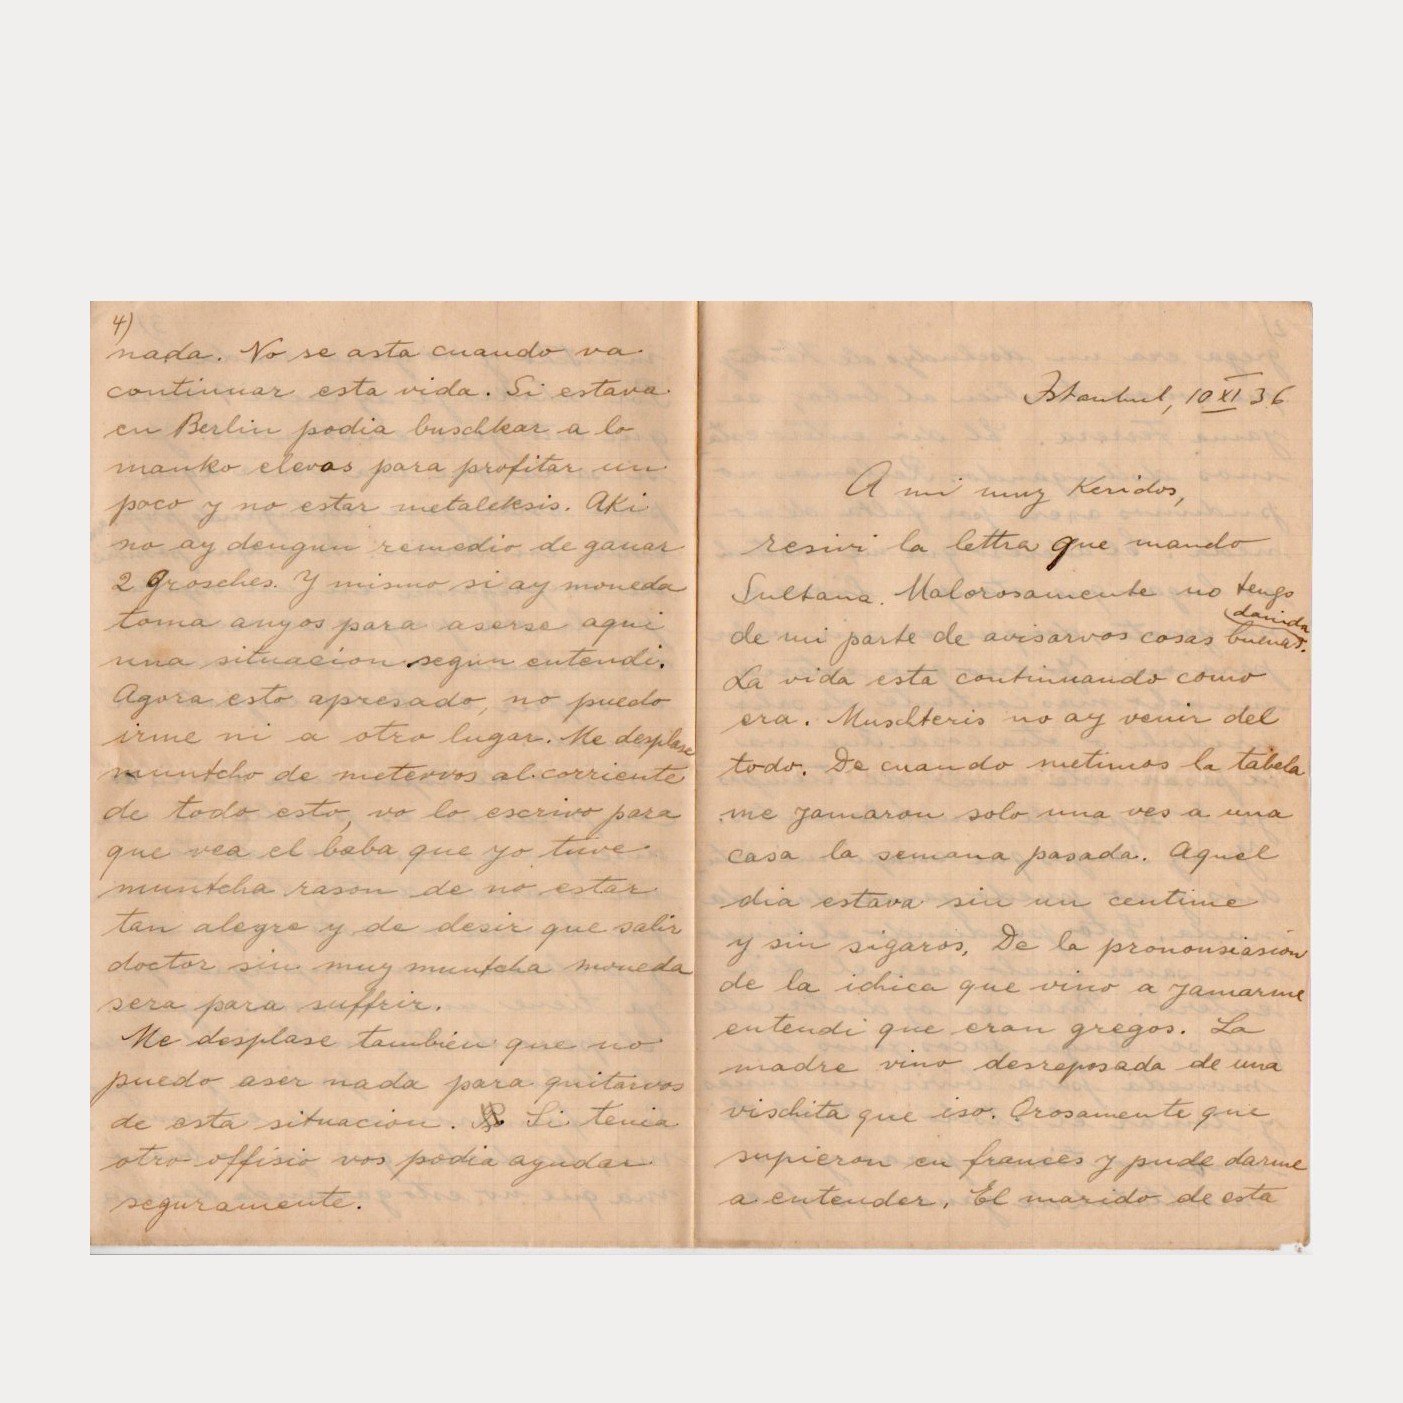 4)
nada. No se asta cuando va
continuar esta vida. Si estava
en Berlin podia buschkar a lo
manko elevas para profitar un
poco y no estar metaleksis. Aki
no ay dengun remedio de ganar
2 Grosches. Y mismo si ay moneda
toma anyos para aserse aqui
una situacion segun entendi.
Agora esto apresado, no puedo
irme ni a otro lugar. Me desplase
muntcho de metervos al corriente
de todo esto, vo lo escrivo para
que vea el baba que yo tuve
muntcha rason de no estar
tan alegre y de desir que salir
doctor sin muy muntcha moneda
sera para suffrir.
Me desplase tambien que no
puedo aser nada para quitarvos
de esta situacion. Si tenia
otro offisio vos podia ayudar
seguramente.
Istanbul, 10 XI 36
A mi muy Keridos,
resivi la lettra que mando
Sultana. Malorosamente no tengo
de mi parte de avisarvos cosas buenas.
La vida esta continuando como
era. Muschteris no ay venir del
todo. De cuando metimos la tabela
me yamaron solo una ves a una
casa la semana pasada. Aquel
dia estava sin un centime
y sin sigaros. De la prononsiasion
de la ichica que vino a yamarme
entendi que eran gregos. La
madre vino desreposada de una
vischita que iso. Orosamente que
supieron en frances y pude darme
a entender. El marido de esta